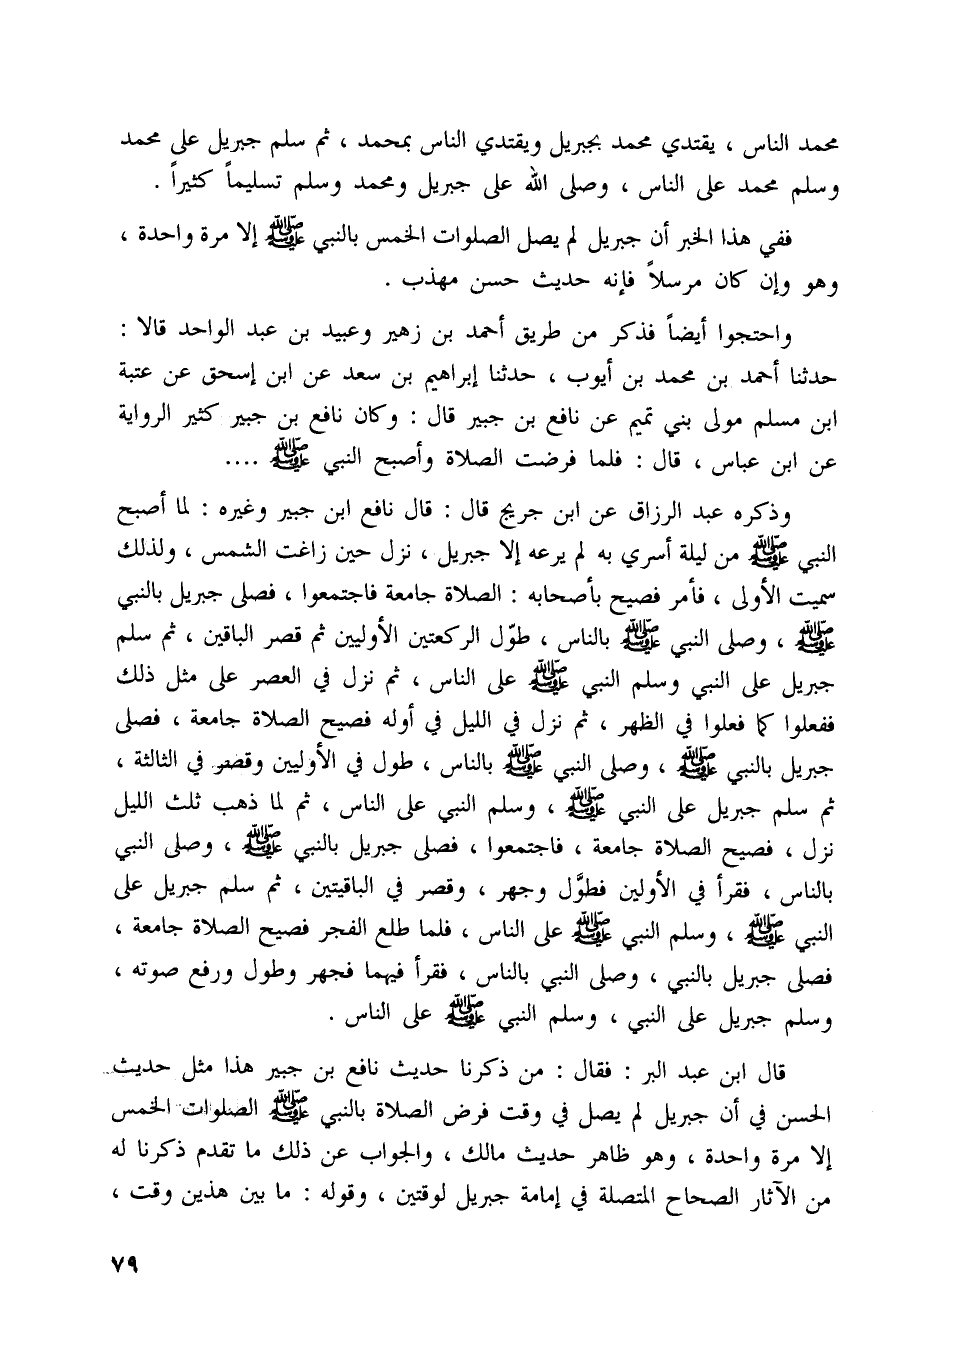 محمد الناس ، يقتدي محمد بجبريل ويقتدي الناس بمحمد ، ثم سلم جبريل على محمد
وسلم محمد على الناس ، وصلى الله على جبريل ومحمد وسلم تسليماً كثيراً .
ففي هذا الخبر أن جبريل لم يصل الصلوات الخمس بالنبي ﷺ إلا مرة واحدة ،
وهو وإن كان مرسلاً فإنه حديث حسن مهذب .
واحتجوا أيضاً فذكر من طريق أحمد بن زهير وعبيد بن عبد الواحد قالا :
حدثنا أحمد بن محمد بن أيوب ، حدثنا إبراهيم بن سعد عن ابن إسحق عن عتبة
ابن مسلم مولى بني تميم عن نافع بن جبير قال : وكان نافع بن جبير كثير الرواية
عن ابن عباس ، قال : فلما فرضت الصلاة وأصبح النبي ﷺ ....
وذكره عبد الرزاق عن ابن جريج قال : قال نافع ابن جبير وغيره : لما أصبح
النبي ﷺ من ليلة أسري به لم يرعه إلا جبريل ، نزل حين زاغت الشمس ، ولذلك
سميت الأولى ، فأمر فصيح بأصحابه : الصلاة جامعة فاجتمعوا ، فصلى جبريل بالنبي
ﷺ ، وصلى النبي ﷺ بالناس ، طوّل الركعتين الأوليين ثم قصر الباقين ، ثم سلم
جبريل على النبي وسلم النبي ﷺ على الناس ، ثم نزل في العصر على مثل ذلك
ففعلوا كما فعلوا في الظهر ، ثم نزل في الليل في أوله فصيح الصلاة جامعة ، فصلى
جبريل بالنبي ﷺ ، وصلى النبي ﷺ بالناس ، طول في الأوليين وقصر في الثالثة ،
ثم سلم جبريل على النبي ﷺ ، وسلم النبي على الناس ، ثم لما ذهب ثلث الليل
نزل ، فصيح الصلاة جامعة ، فاجتمعوا ، فصلى جبريل بالنبي ﷺ ، وصلى النبي
بالناس ، فقرأ في الأولين فطوَّل وجهر ، وقصر في الباقيتين ، ثم سلم جبريل على
النبي ﷺ ، وسلم النبي ﷺ على الناس ، فلما طلع الفجر فصيح الصلاة جامعة ،
فصلى جبريل بالنبي ، وصلى النبي بالناس ، فقرأ فيهما فجهر وطول ورفع صوته ،
وسلم جبريل على النبي ، وسلم النبي ﷺ على الناس .
قال ابن عبد البر : فقال : من ذكرنا حديث نافع بن جبير هذا مثل حديث
الحسن في أن جبريل لم يصل في وقت فرض الصلاة بالنبي ﷺ الصلوات الخمس
إلا مرة واحدة ، وهو ظاهر حديث مالك ، والجواب عن ذلك ما تقدم ذكرنا له
من الآثار الصحاح المتصلة في إمامة جبريل لوقتين ، وقوله : ما بين هذين وقت ،
٧٩